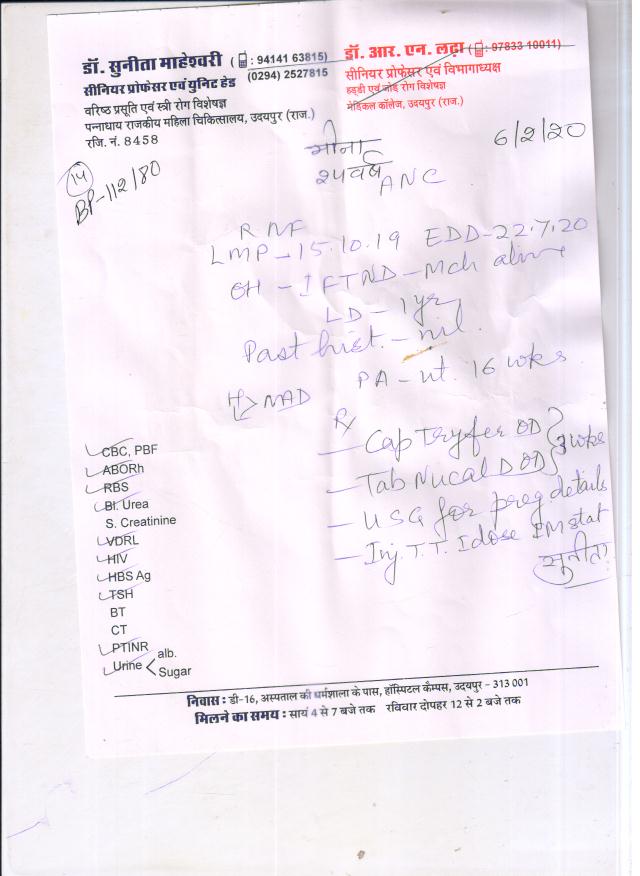 डॉ. सुनीता माहेश्वरी ( : 94141 63815)
(0294) 2527815
सीनियर प्रोफेसर एवं युनिट हेड
वरिष्ठ प्रसूति एवं स्त्री रोग विशेषज्ञ
पन्नाधाय राजकीय महिला चिकित्सालय, उदयपुर (राज.)
रजि. नं. 8458
डॉ. आर. एन. लढ़ा ( : 97833 10011)
सीनियर प्रोफेसर एवं विभागाध्यक्ष
हड्डी एवं जोड़ रोग विशेषज्ञ
मेडिकल कॉलेज, उदयपुर (राज.)
6/2/20
मीना
२५ वर्ष
ANC
14
BP-112/80
R NF
LMP-15.10.19 EDD-22.7.20
OH - I FTND - Mch alive
LD - 1 yr
Past hist. - nil.
PA - ut. 16 wks
NAD
Rx
- Cap Tryfer OD
- Tab Nucal D OD } 3 wks
- USG for preg details
- Inj. T.T. I dose IM stat
सुनीता
CBC, PBF
ABORh
RBS
Bl. Urea
S. Creatinine
VDRL
HIV
HBS Ag
TSH
BT
CT
PTINR
Urine < alb.
Sugar
निवास : डी-16, अस्पताल की धर्मशाला के पास, हॉस्पिटल कैम्पस, उदयपुर - 313 001
मिलने का समय : सायं 4 से 7 बजे तक रविवार दोपहर 12 से 2 बजे तक